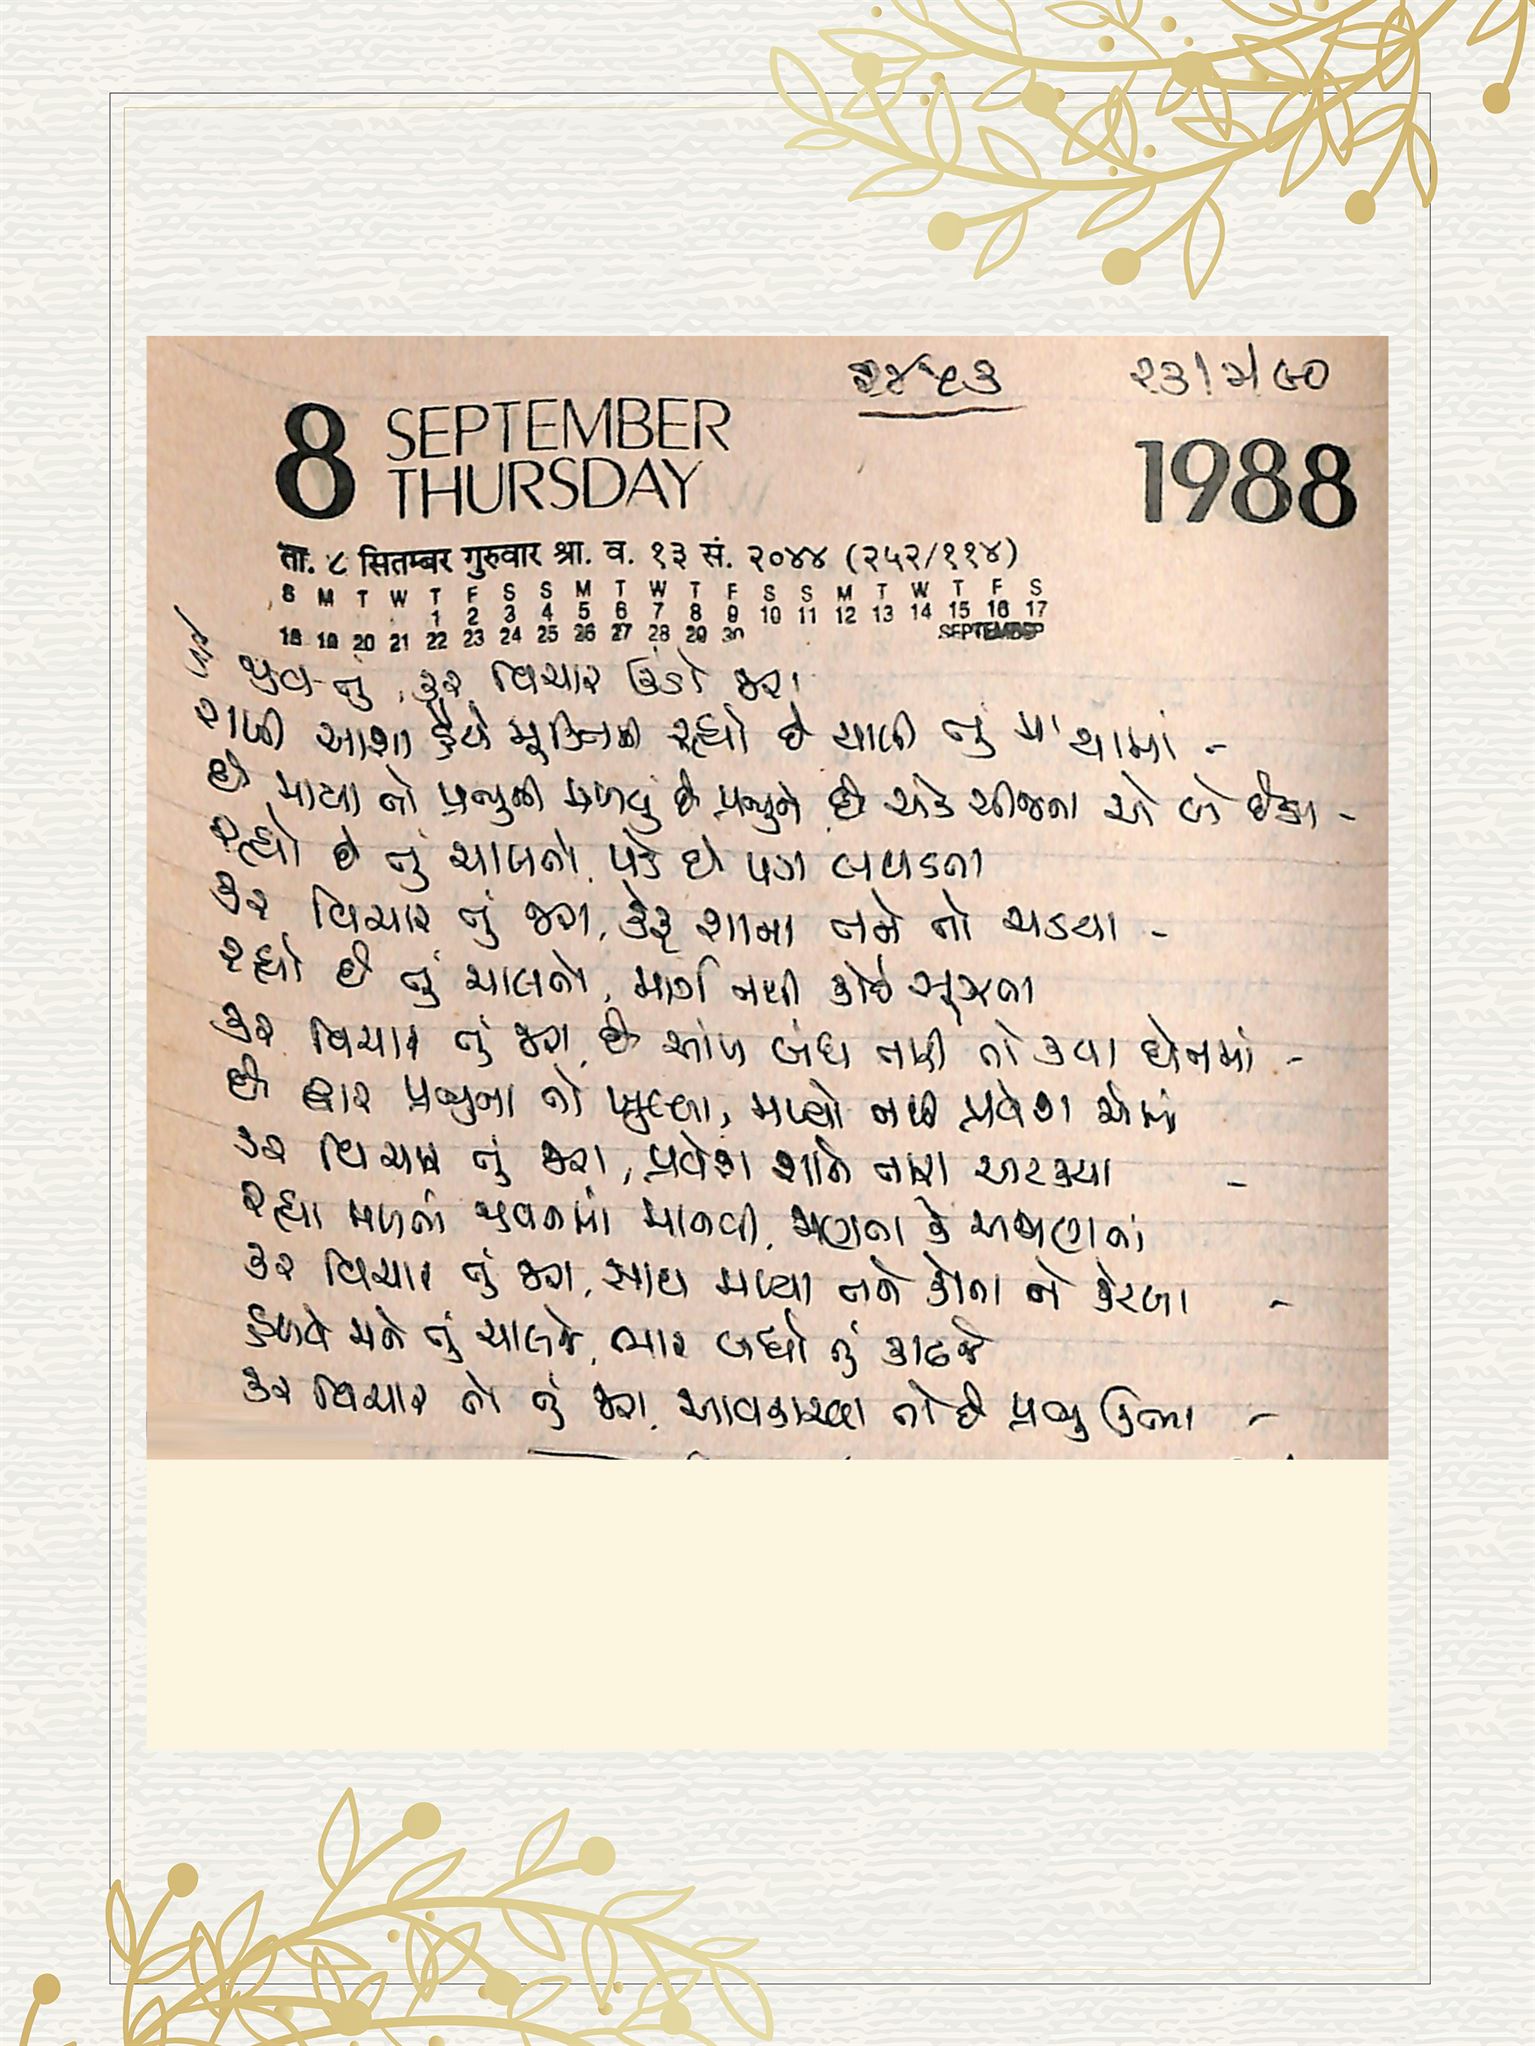 ૨૪૯૩ ૨૩/૪/૯૦
8 SEPTEMBER
THURSDAY
1988
ता. ८ सितम्बर गुरुवार श्रा. व. १३ सं. २०४४ (२५२/११४)
S M T W T F S S M T W T F S S M T W T F S
1 2 3 4 5 6 7 8 9 10 11 12 13 14 15 16 17
18 19 20 21 22 23 24 25 26 27 28 29 30 SEPTEMBER
જીવ તું, કર વિચાર ઊંડો જરા
રાખી આશા હૈયે મુક્તિની રહ્યો છે ચાલી તું માયામાં -
છે માયા તો પ્રભુની મળવું છે પ્રભુને છે અંતે ચીજના એ બે છેડા -
રહ્યો છે તું ચાલતો, પડે છે પગ લથડતા
કર વિચાર તું જરા, કેફ શાના તને તો ચડયા -
રહ્યો છે તું ચાલતો, માર્ગ નથી કોઈ સૂઝતા
કર વિચાર તું જરા, છે આંખ બંધ તારી તો કેવા ઘેનમાં -
છે દ્વાર પ્રભુના તો ખુલ્લા, મળ્યો નથી પ્રવેશ એમાં
કર વિચાર તું જરા, પ્રવેશ શાને તારા અટક્યા -
રહ્યા મળતાં જીવનમાં માનવી, જાણતા કે અજાણતાં
કર વિચાર તું જરા, સાથ મળ્યા તને કોના ને કેટલા -
હળવે મને તું ચાલજે, ભાર બધો તું કાઢજે
કર વિચાર તો તું જરા, આવકારવા તો છે પ્રભુ ઊભા -